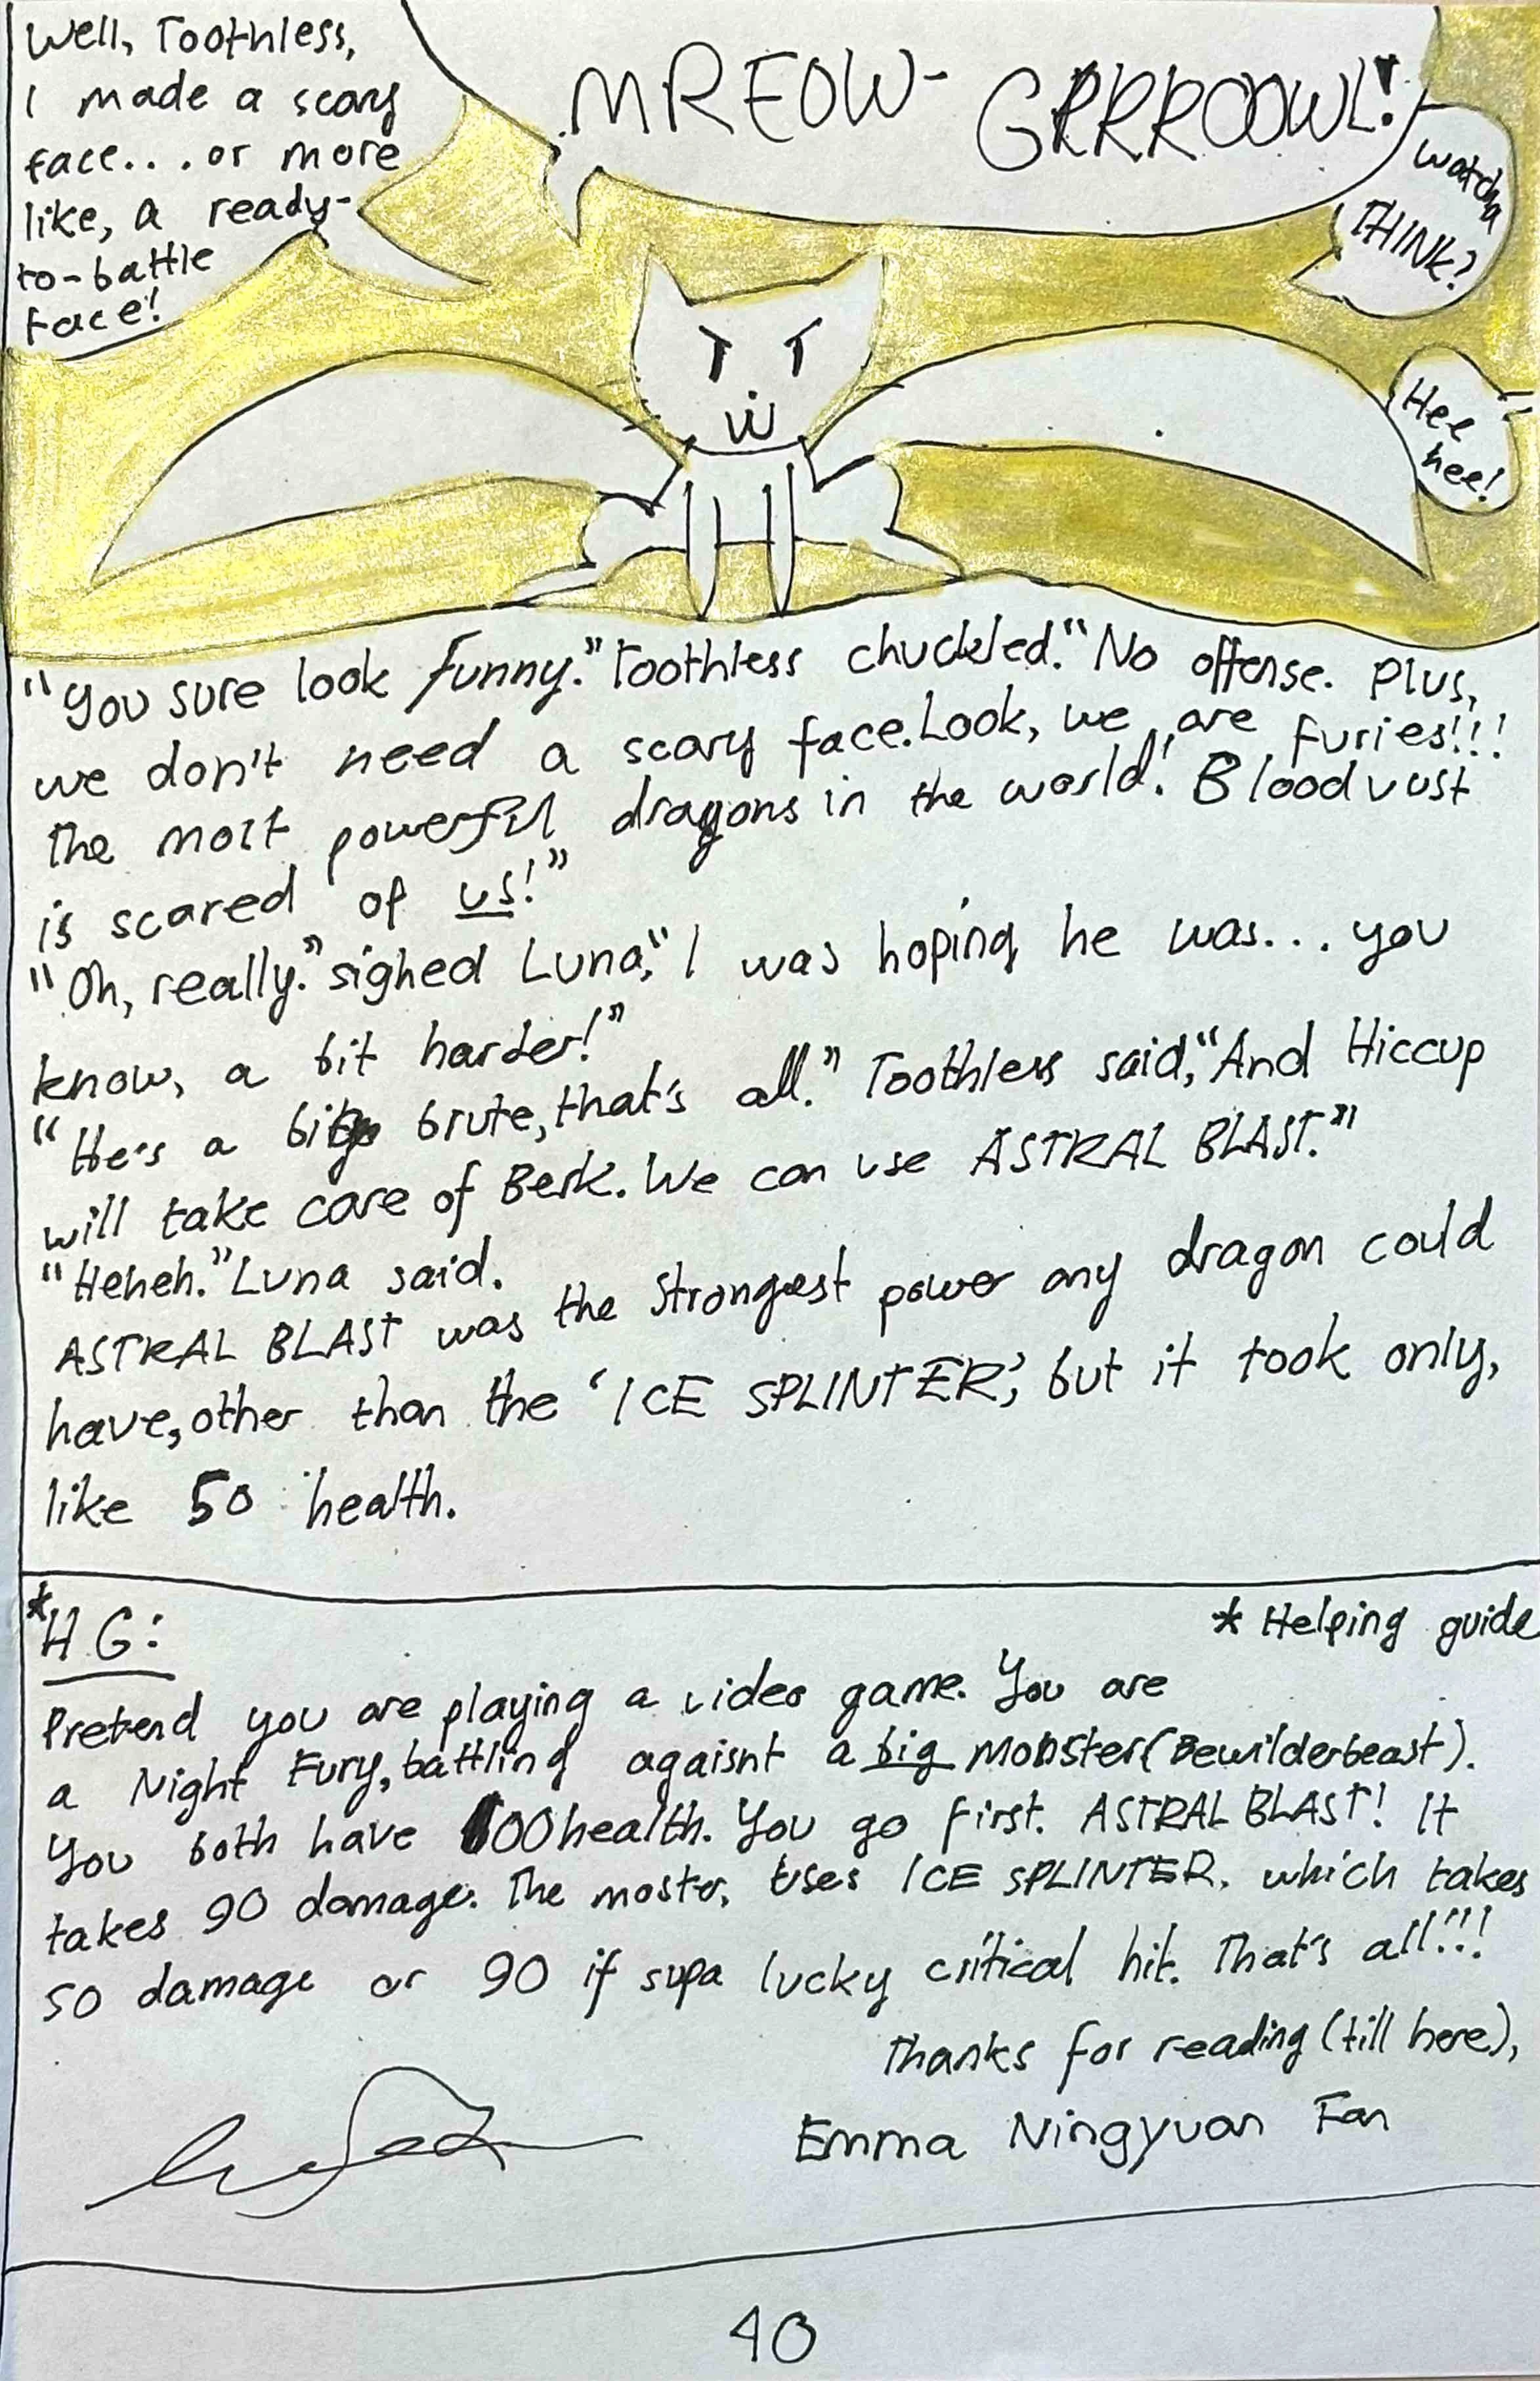 Well, Toothless,
I made a scary
face... or more
like, a ready-
to-battle
face!
MREOW-
GRRROOWL!
watcha
THINK?
Hee
hee!
"You sure look funny." Toothless chuckled. "No offense. Plus,
we don't need a scary face. Look, we are furies!!!
The most powerful dragons in the world! Bloodvust
is scared of us!"
"Oh, really." sighed Luna, "I was hoping he was... you
know, a bit harder!"
"He's a big brute, that's all." Toothless said, "And Hiccup
will take care of Berk. We can use ASTRAL BLAST."
"Heheh." Luna said.
ASTRAL BLAST was the strongest power any dragon could
have, other than the 'ICE SPLINTER', but it took only,
like 50 health.
*HG:
* Helping guide
Pretend you are playing a video game. You are
a Night Fury, battling agaisnt a big monster (Bewilderbeast).
You both have 100 health. You go first. ASTRAL BLAST! It
takes 90 damage. The moster, uses ICE SPLINTER, which takes
50 damage or 90 if supa lucky critical hit. That's all!!!
Thanks for reading (till here),
Emma Ningyuan Fan
40